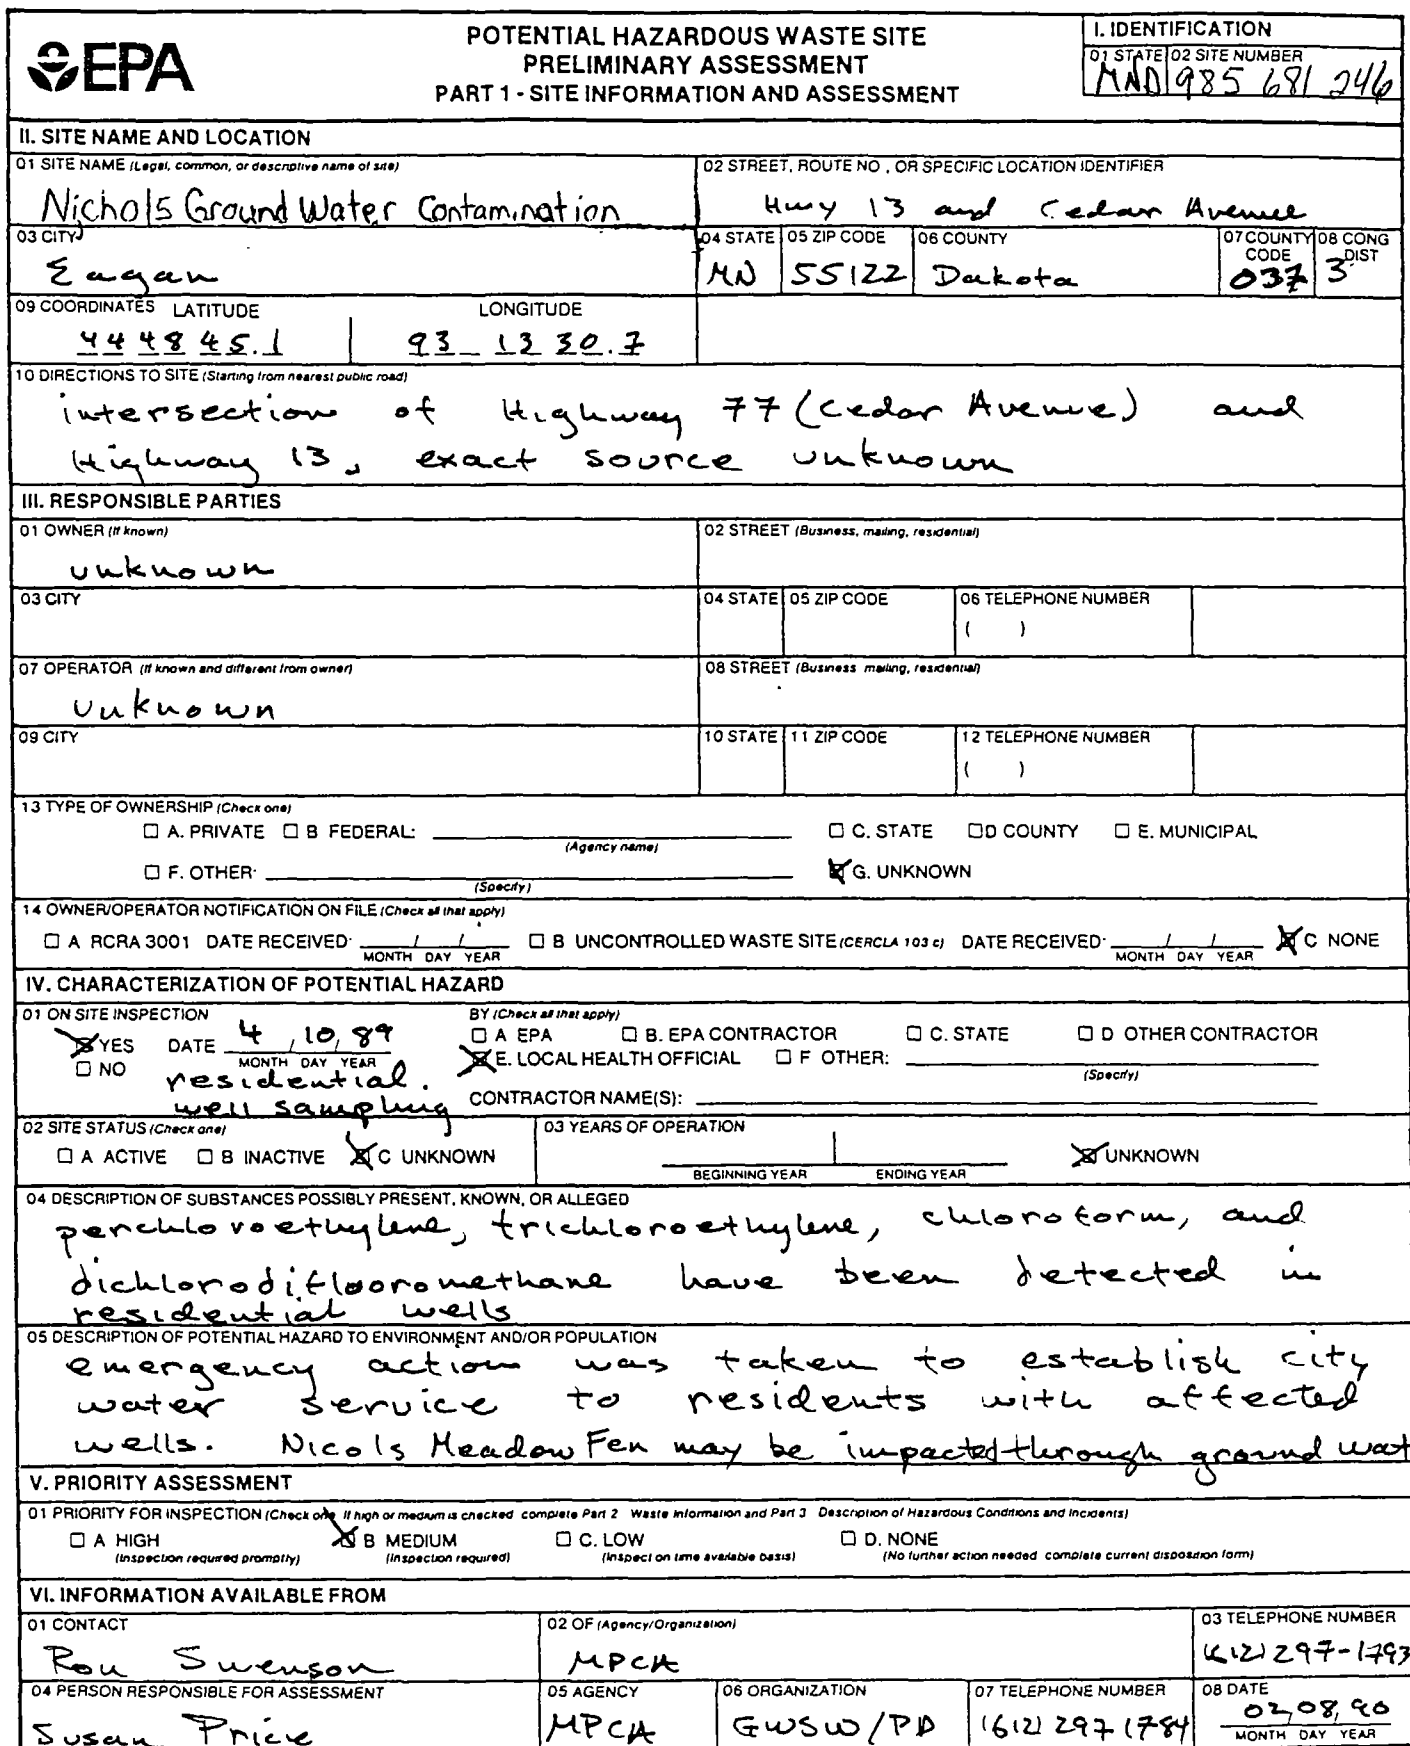 EPA
POTENTIAL HAZARDOUS WASTE SITE
PRELIMINARY ASSESSMENT
PART 1 - SITE INFORMATION AND ASSESSMENT
I. IDENTIFICATION
01 STATE 02 SITE NUMBER
MND 985 681 246
II. SITE NAME AND LOCATION
01 SITE NAME (Legal, common, or descriptive name of site)
Nichols Ground Water Contamination
02 STREET, ROUTE NO., OR SPECIFIC LOCATION IDENTIFIER
Hwy 13 and Cedar Avenue
03 CITY
Eagan
04 STATE
MN
05 ZIP CODE
55122
06 COUNTY
Dakota
07 COUNTY CODE
037
08 CONG DIST
3
09 COORDINATES LATITUDE LONGITUDE
44 48 45.1 93 13 30.7
10 DIRECTIONS TO SITE (Starting from nearest public road)
intersection of Highway 77 (Cedar Avenue) and
Highway 13, exact source unknown
III. RESPONSIBLE PARTIES
01 OWNER (If known)
unknown
02 STREET (Business, mailing, residential)
03 CITY
04 STATE 05 ZIP CODE 06 TELEPHONE NUMBER
( )
07 OPERATOR (If known and different from owner)
Unknown
08 STREET (Business mailing, residential)
09 CITY
10 STATE 11 ZIP CODE 12 TELEPHONE NUMBER
( )
13 TYPE OF OWNERSHIP (Check one)
A. PRIVATE B FEDERAL: (Agency name) C. STATE D COUNTY E. MUNICIPAL
F. OTHER: (Specify) G. UNKNOWN
14 OWNER/OPERATOR NOTIFICATION ON FILE (Check all that apply)
A RCRA 3001 DATE RECEIVED: / / MONTH DAY YEAR B UNCONTROLLED WASTE SITE (CERCLA 103 c) DATE RECEIVED: / / MONTH DAY YEAR C NONE
IV. CHARACTERIZATION OF POTENTIAL HAZARD
01 ON SITE INSPECTION
YES DATE 4 / 10 / 89
NO MONTH DAY YEAR
residential
well sampling
BY (Check all that apply)
A EPA B. EPA CONTRACTOR C. STATE D OTHER CONTRACTOR
E. LOCAL HEALTH OFFICIAL F OTHER:
(Specify)
CONTRACTOR NAME(S):
02 SITE STATUS (Check one)
A ACTIVE B INACTIVE C UNKNOWN
03 YEARS OF OPERATION
BEGINNING YEAR ENDING YEAR UNKNOWN
04 DESCRIPTION OF SUBSTANCES POSSIBLY PRESENT, KNOWN, OR ALLEGED
perchloroethylene, trichloroethylene, chloroform, and
dichlorodifluoromethane have been detected in
residential wells
05 DESCRIPTION OF POTENTIAL HAZARD TO ENVIRONMENT AND/OR POPULATION
emergency action was taken to establish city
water service to residents with affected
wells. Nicols Meadow Fen may be impacted through ground wat
V. PRIORITY ASSESSMENT
01 PRIORITY FOR INSPECTION (Check one If high or medium is checked complete Part 2 Waste Information and Part 3 Description of Hazardous Conditions and Incidents)
A HIGH B MEDIUM C. LOW D. NONE
(Inspection required promptly) (Inspection required) (Inspect on time available basis) (No further action needed complete current disposition form)
VI. INFORMATION AVAILABLE FROM
01 CONTACT
Ron Swenson
02 OF (Agency/Organization)
MPCA
03 TELEPHONE NUMBER
(612) 297-1793
04 PERSON RESPONSIBLE FOR ASSESSMENT
Susan Price
05 AGENCY
MPCA
06 ORGANIZATION
GWSW/PD
07 TELEPHONE NUMBER
(612) 297 1784
08 DATE
02,08,90
MONTH DAY YEAR